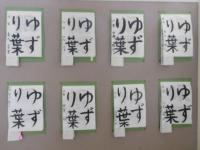 ゆず
り葉
ゆず
り葉
ゆず
り葉
ゆず
り葉
ゆず
り葉
ゆず
り葉
ゆず
り葉
ゆず
り葉